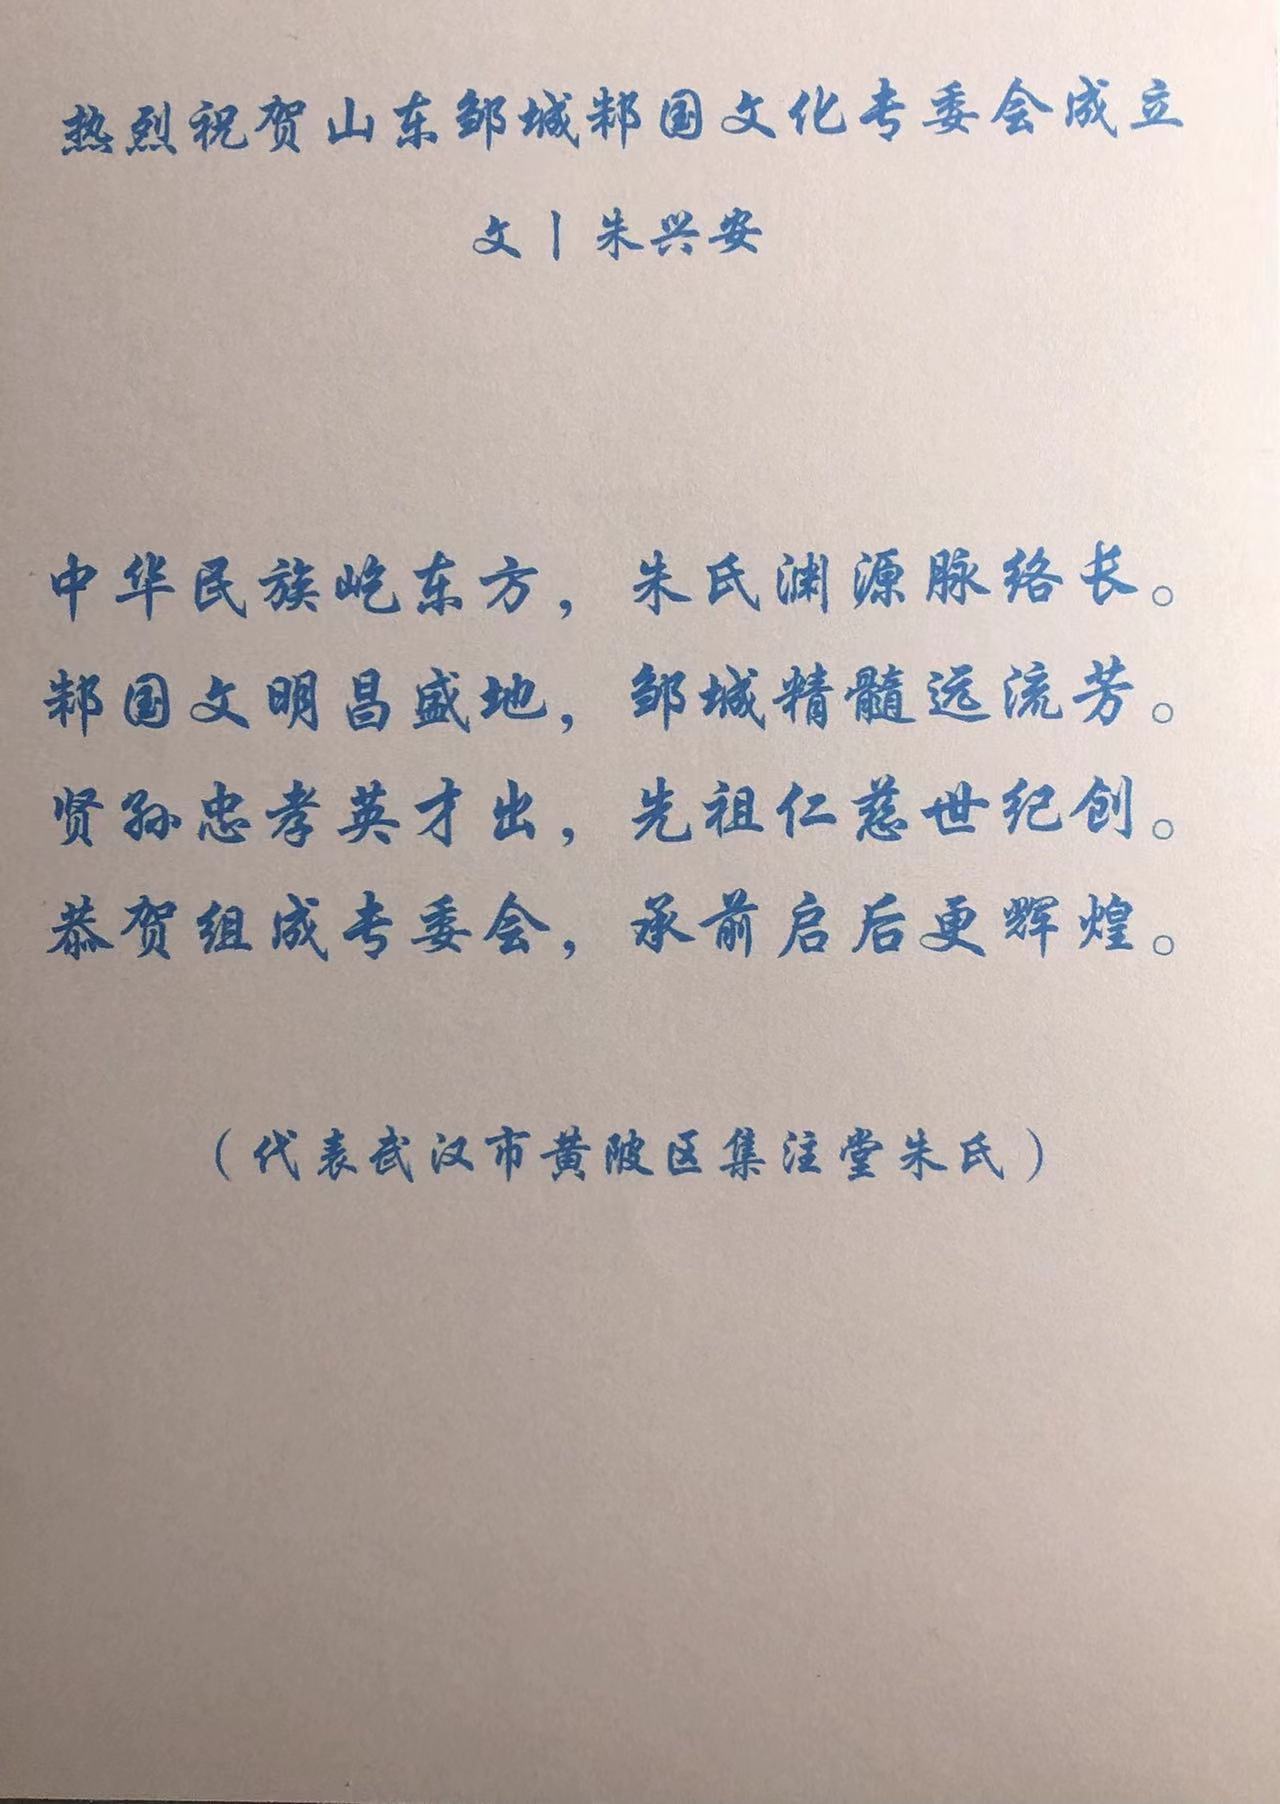 热烈祝贺山东邹城邾国文化专委会成立
文丨朱兴安
中华民族屹东方，朱氏渊源脉络长。
邾国文明昌盛地，邹城精髓远流芳。
贤孙忠孝英才出，先祖仁慈世纪创。
恭贺组成专委会，承前启后更辉煌。
（代表武汉市黄陂区集注堂朱氏）